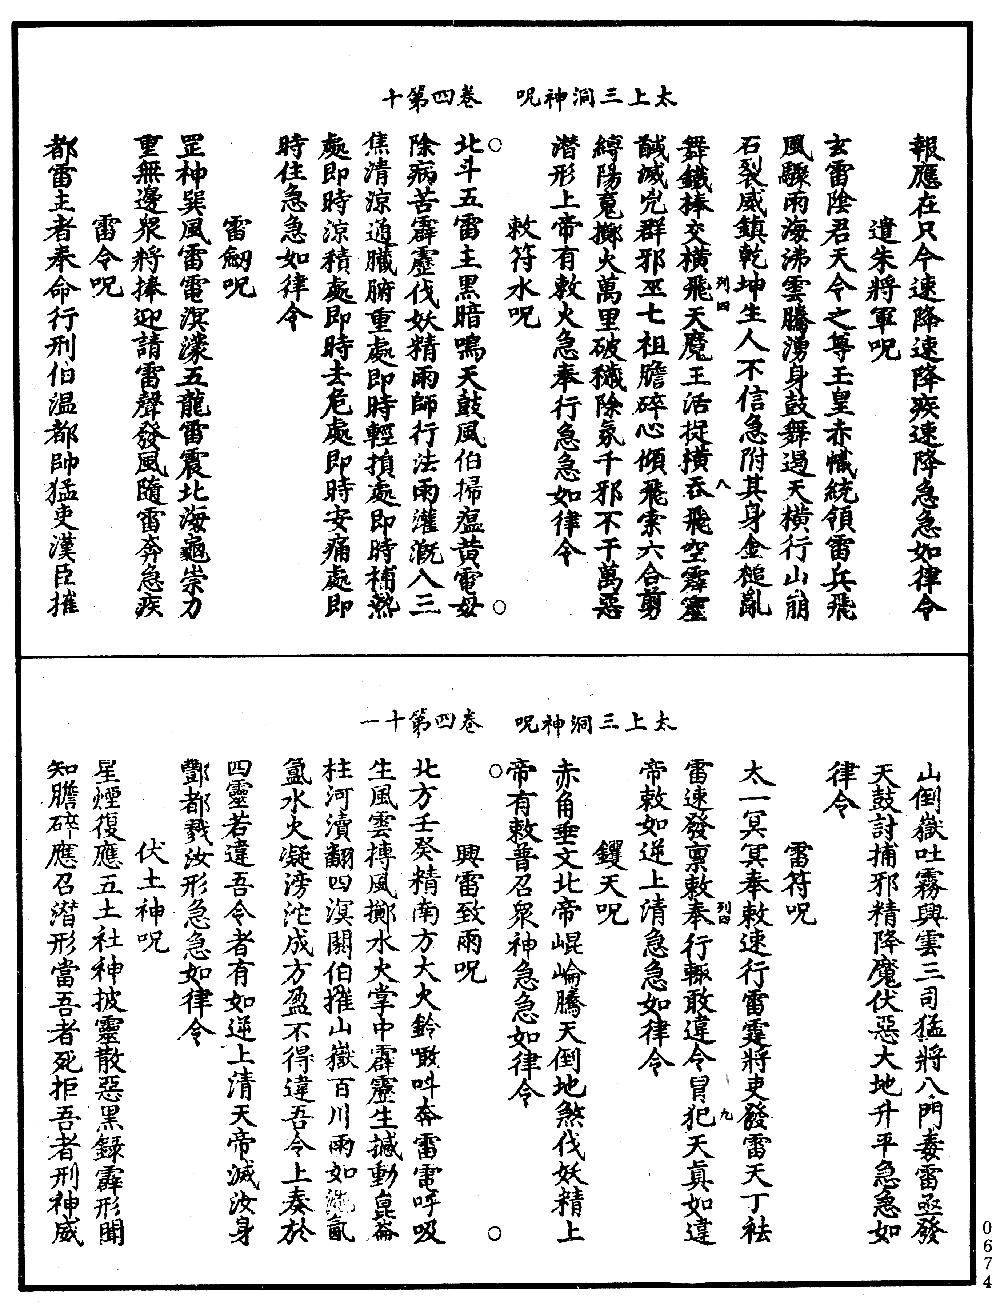 太上三洞神呪　卷四第十
報應在只今速降速降疾速降急急如律令
遣朱將軍呪
玄雷陰君天令之尊王皇赤幟統領雷兵飛
風驟雨海沸雲騰湧身鼓舞過天橫行山崩
石裂威鎮乾坤生人不信急附其身金槌亂
舞鐵棒交橫飛天魔王活捉橫吞飛空霹靂
馘滅兇群邪巫七祖膽碎心傾飛索六合剪
縛陽䰟擲火萬里破穢除氛千邪不干萬惡
潛形上帝有敕火急奉行急急如律令
敕符水呪
北斗五雷主黑暗鳴天鼓風伯掃瘟黄電母
除病苦霹靂伐妖精雨師行法雨灌溉入三
焦清涼通臟腑重處即時輕損處即時補熱
處即時涼積處即時去危處即時安痛處即
時住急急如律令
雷劒呪
罡神巽風雷電溟濛五龍雷震北海龜崇力
重無邊衆將捧迎請雷聲發風隨雷奔急疾
雷令呪
都雷主者奉命行刑伯温都帥猛吏漢臣摧
列四
八
太上三洞神呪　卷四第十一
山倒嶽吐霧興雲三司猛將八門毒雷亟發
天鼓討捕邪精降魔伏惡大地升平急急如
律令
雷符呪
太一冥冥奉敕速行雷霆將吏發雷天丁袪
雷速發禀敕奉行輙敢違令冐犯天真如違
帝敕如逆上清急急如律令
鑊天呪
赤角垂文北帝崐崘騰天倒地煞伐妖精上
帝有敕普召衆神急急如律令
興雷致雨呪
北方壬癸精南方大火鈴㗸呌奔雷電呼吸
生風雲摶風擲水火掌中霹靂生撼動崑崙
柱河瀆翻四溟闢伯摧山嶽百川雨如施氤
氳水火凝滂沱成方盈不得違吾令上奏於
四靈若違吾令者有如逆上清天帝滅汝身
酆都戮汝形急急如律令
伏土神呪
星煙復應五土社神披靈散惡黑録霹形聞
知膽碎應召潛形當吾者死拒吾者刑神威
列四
九
0674